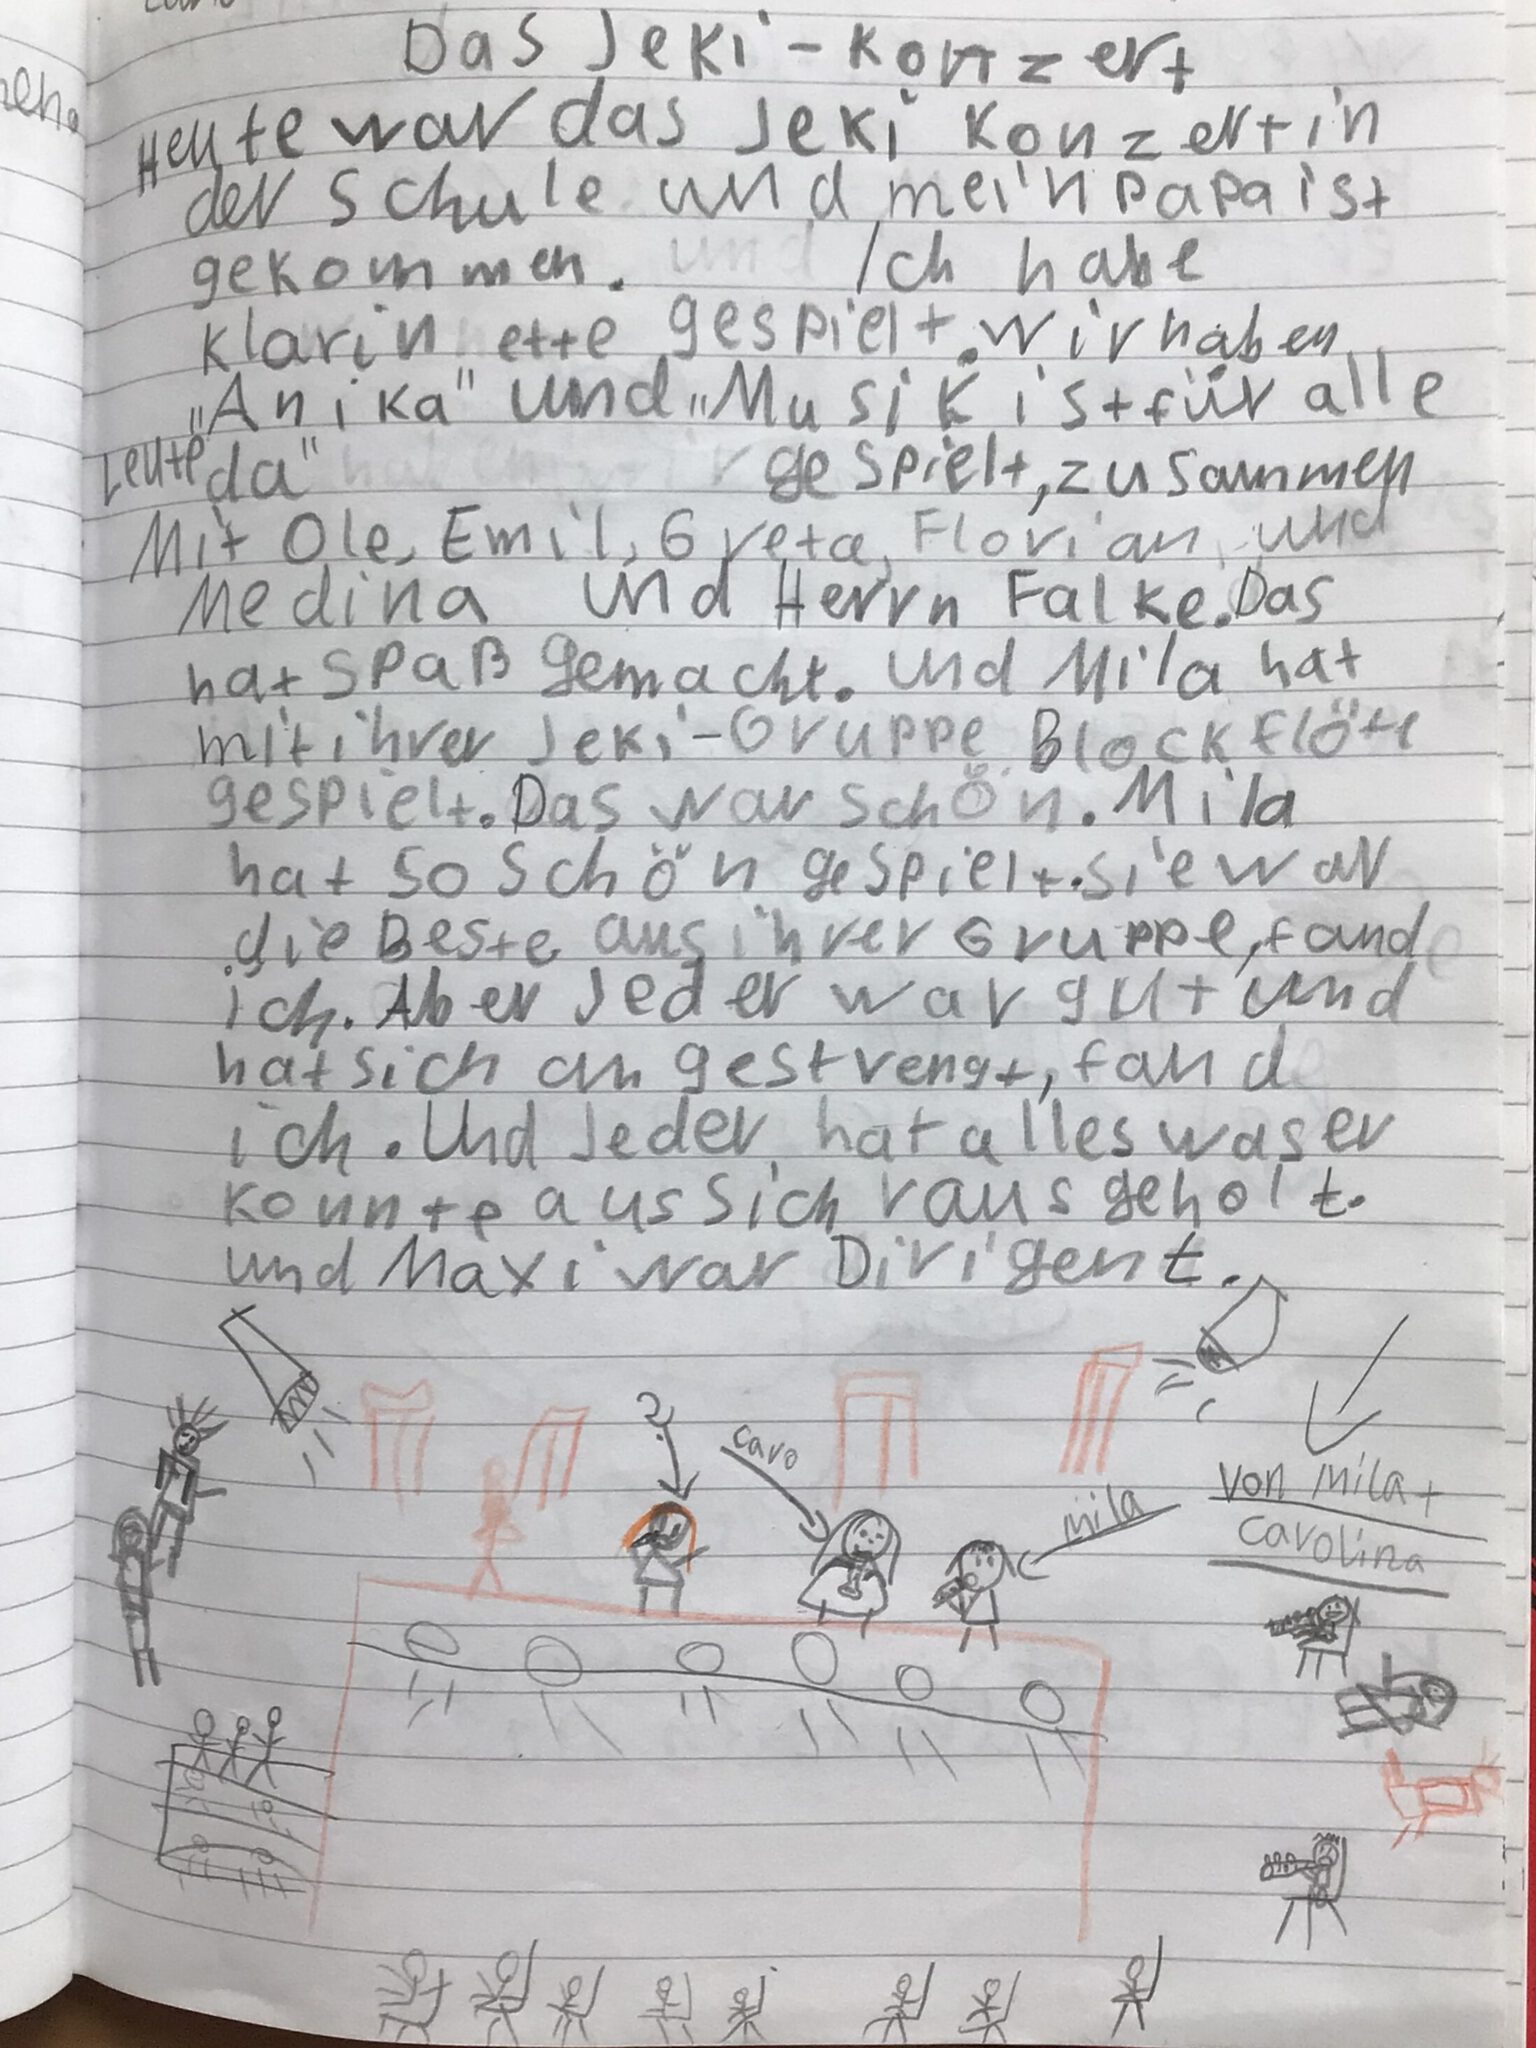 Das Jeki-Konzert
Heute war das Jeki Konzert in
der Schule und mein Papa ist
gekommen. und Ich habe
Klarinette gespielt. Wir haben
„Anika" und „Musik ist für alle
Leute da" haben wir gespielt, zusammen
Mit Ole, Emil, Greta, Florian, und
Medina und Herrn Falke. Das
hat Spaß gemacht. Und Mila hat
mit ihrer Jeki-Gruppe Blockflöte
gespielt. Das war schön. Mila
hat so schön gespielt. sie war
die Beste aus ihrer Gruppe, fand
ich. Aber Jeder war gut und
hat sich angestrengt, fand
ich. Und Jeder hat alles was er
konnte aus sich rausgeholt.
und Maxi war Dirigent.
?
Caro
Mila
von Mila +
Carolina